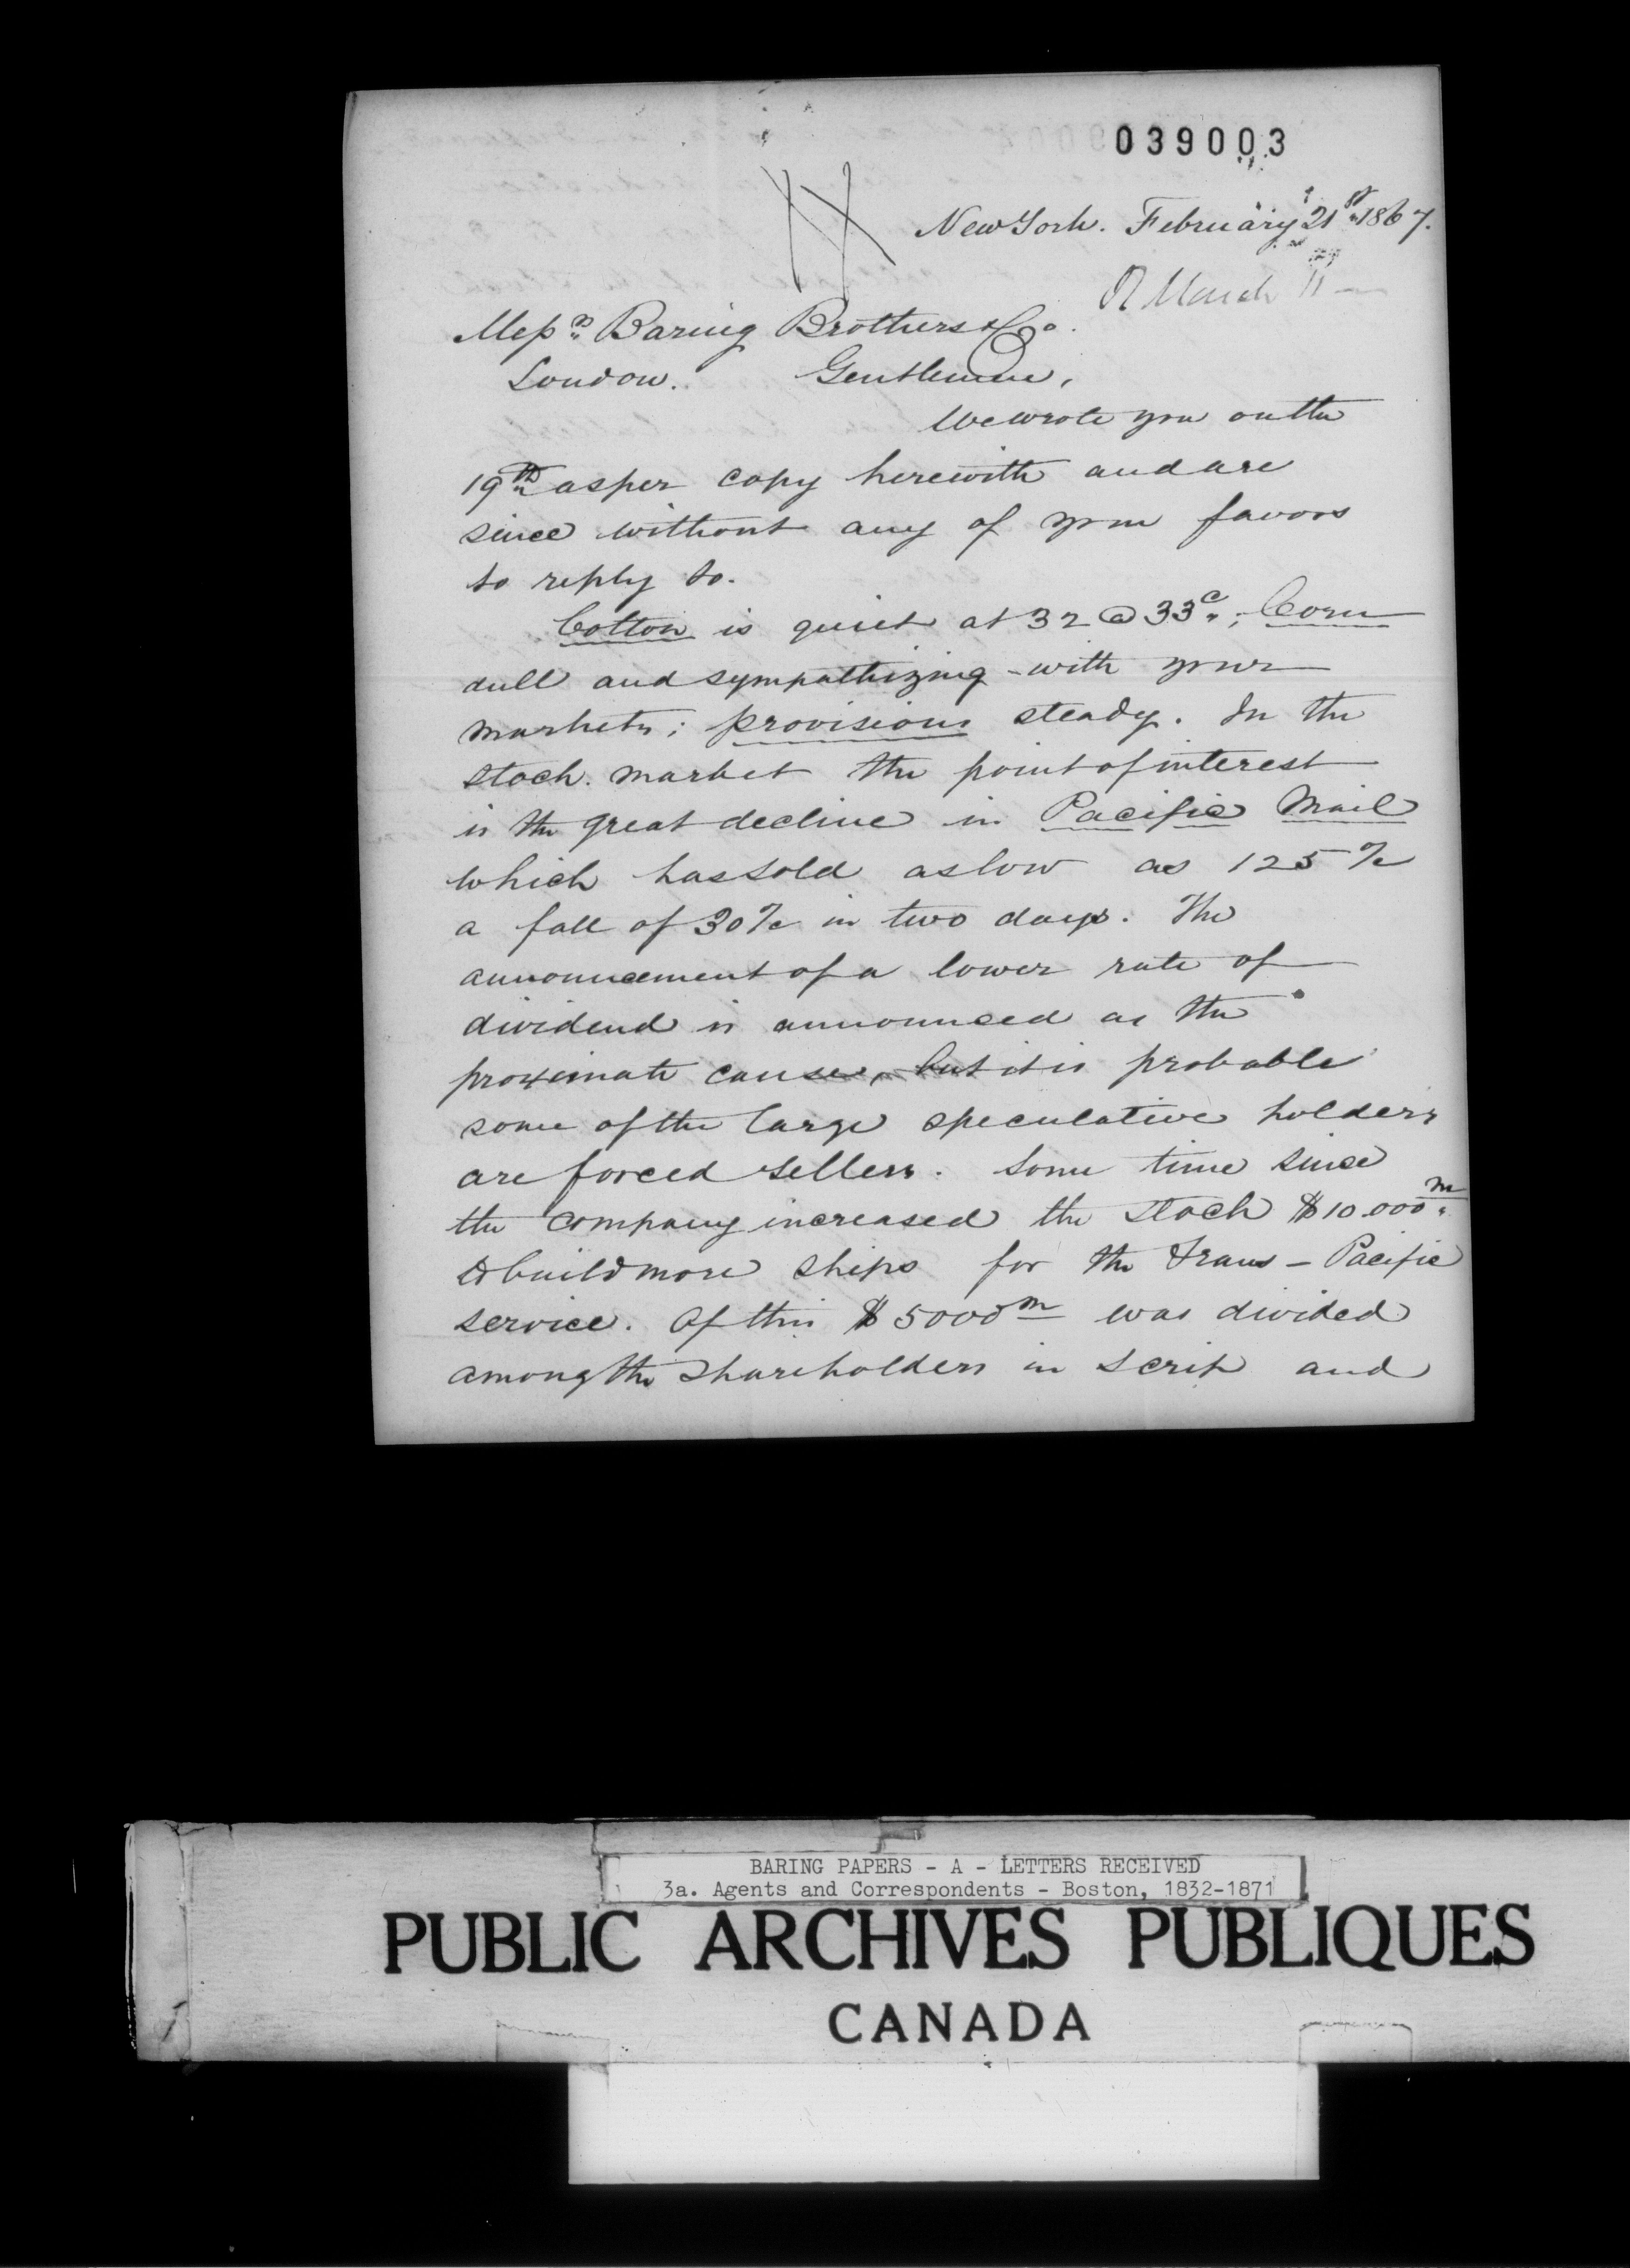 039003
New York. February 21st 1867.
R March 11
Messrs Baring Brothers & Co.
London. Gentlemen,
We wrote you on the
19th as per copy herewith and are
since without any of your favors
to reply to.
Cotton is quiet at 32 @ 33c; Corn
dull and sympathizing with your
markets; provisions steady. In the
stock market the point of interest
is the great decline in Pacific Mail
which has sold as low as 125%
a fall of 30% in two days. The
announcement of a lower rate of
dividend is announced as the
proximate cause, but it is probable
some of the large speculative holders
are forced sellers. Some time since
the company increased the stock $10.000m
to build more ships for the Trans-Pacific
service. Of this $5000m was divided
among the shareholders in scrip and
BARING PAPERS - A - LETTERS RECEIVED
3a. Agents and Correspondents - Boston, 1832-1871
PUBLIC ARCHIVES PUBLIQUES
CANADA